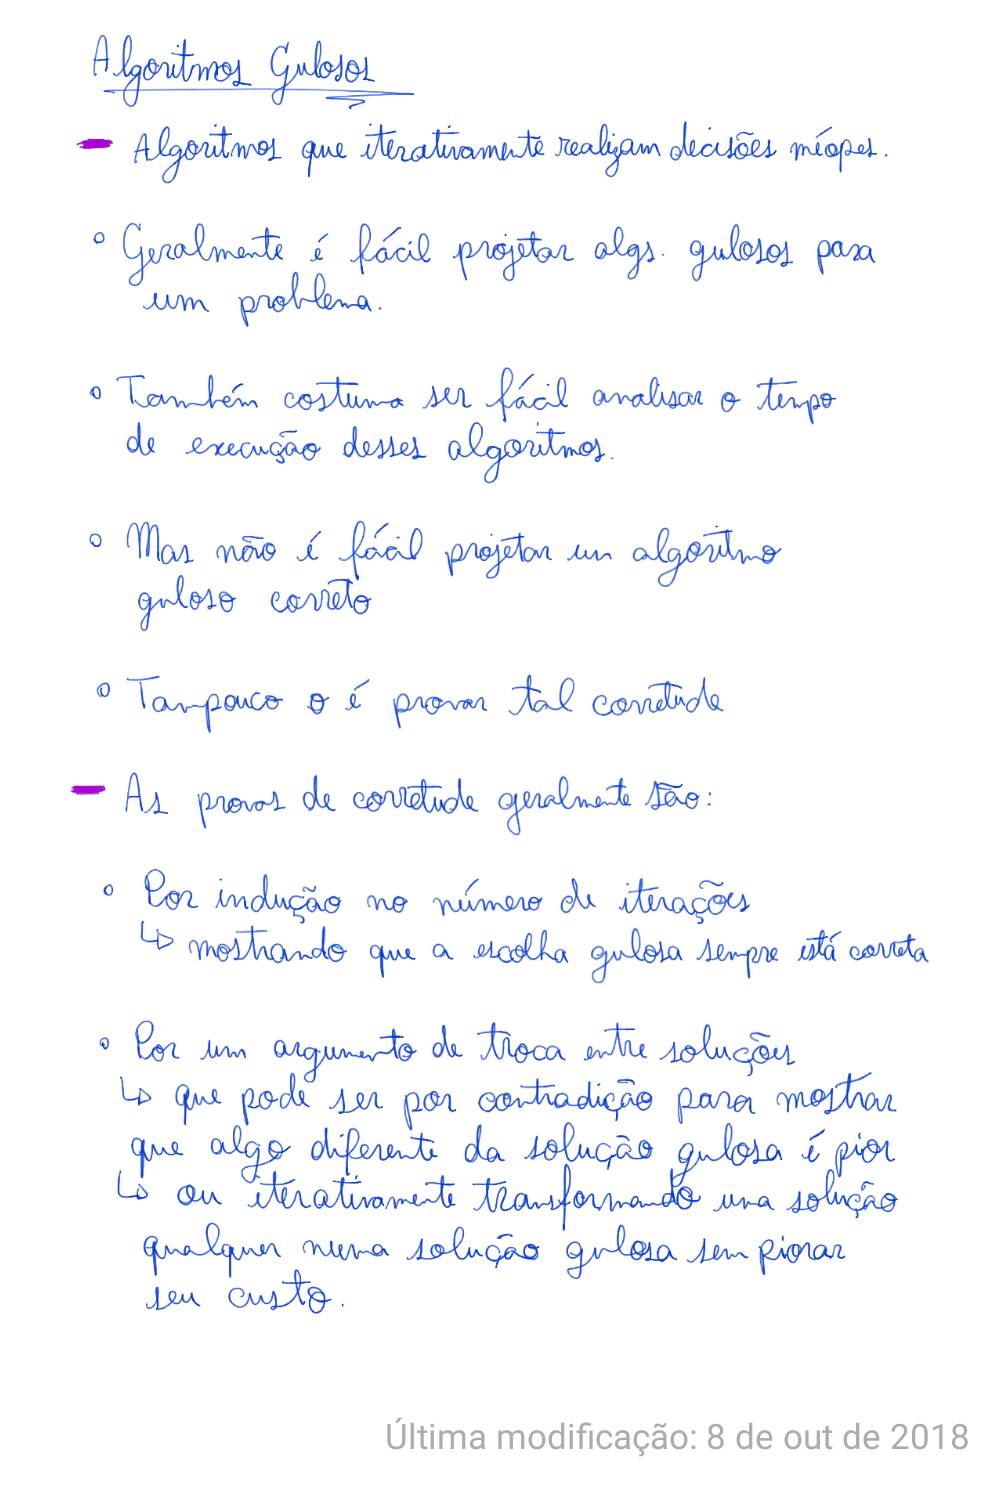 Algoritmos Gulosos
- Algoritmos que iterativamente realizam decisões míopes.
° Geralmente é fácil projetar algs. gulosos para
um problema.
° Também costuma ser fácil analisar o tempo
de execução desses algoritmos.
° Mas não é fácil projetar um algoritmo
guloso correto
° Tampouco o é provar tal corretude
- As provas de corretude geralmente são:
° Por indução no número de iterações
↳ mostrando que a escolha gulosa sempre está correta
° Por um argumento de troca entre soluções
↳ que pode ser por contradição para mostrar
que algo diferente da solução gulosa é pior
↳ ou iterativamente transformando uma solução
qualquer numa solução gulosa sem piorar
seu custo.
Última modificação: 8 de out de 2018